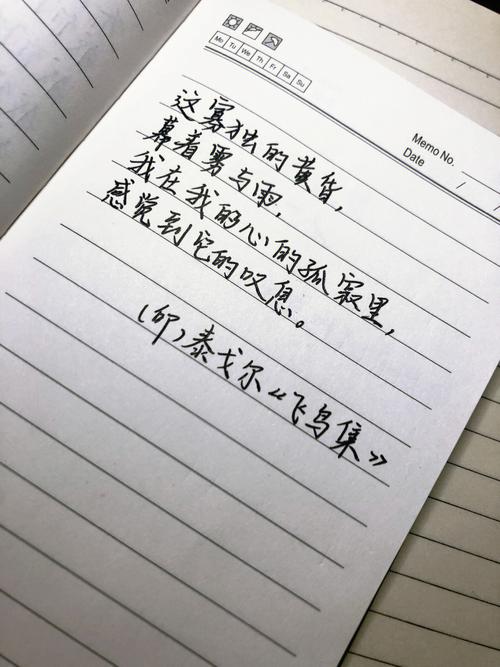 Mo Tu We Th Fr Sa Su
Memo No.
Date / /
这寡独的黄昏,
幕着雾与雨,
我在我的心的孤寂里,
感觉到它的叹息。
(印)泰戈尔《飞鸟集》